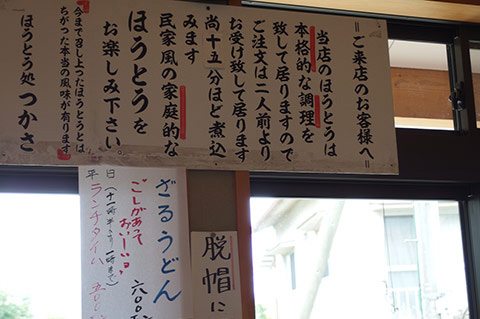 =ご来店のお客様へ=
当店のほうとうは
本格的な調理を
致して居りますので
ご注文は二人前より
お受け致して居ります
尚十五分ほど煮込
みます
民家風の家庭的な
ほうとうを
お楽しみ下さい。
今まで召し上ったほうとうとは
ちがった本当の風味が有ります
ほうとう処つかさ
脱帽に
ざるうどん
六〇〇
ごしがあって
おいーいョ
平日
(十一時半より一時まで)
ランチタイム